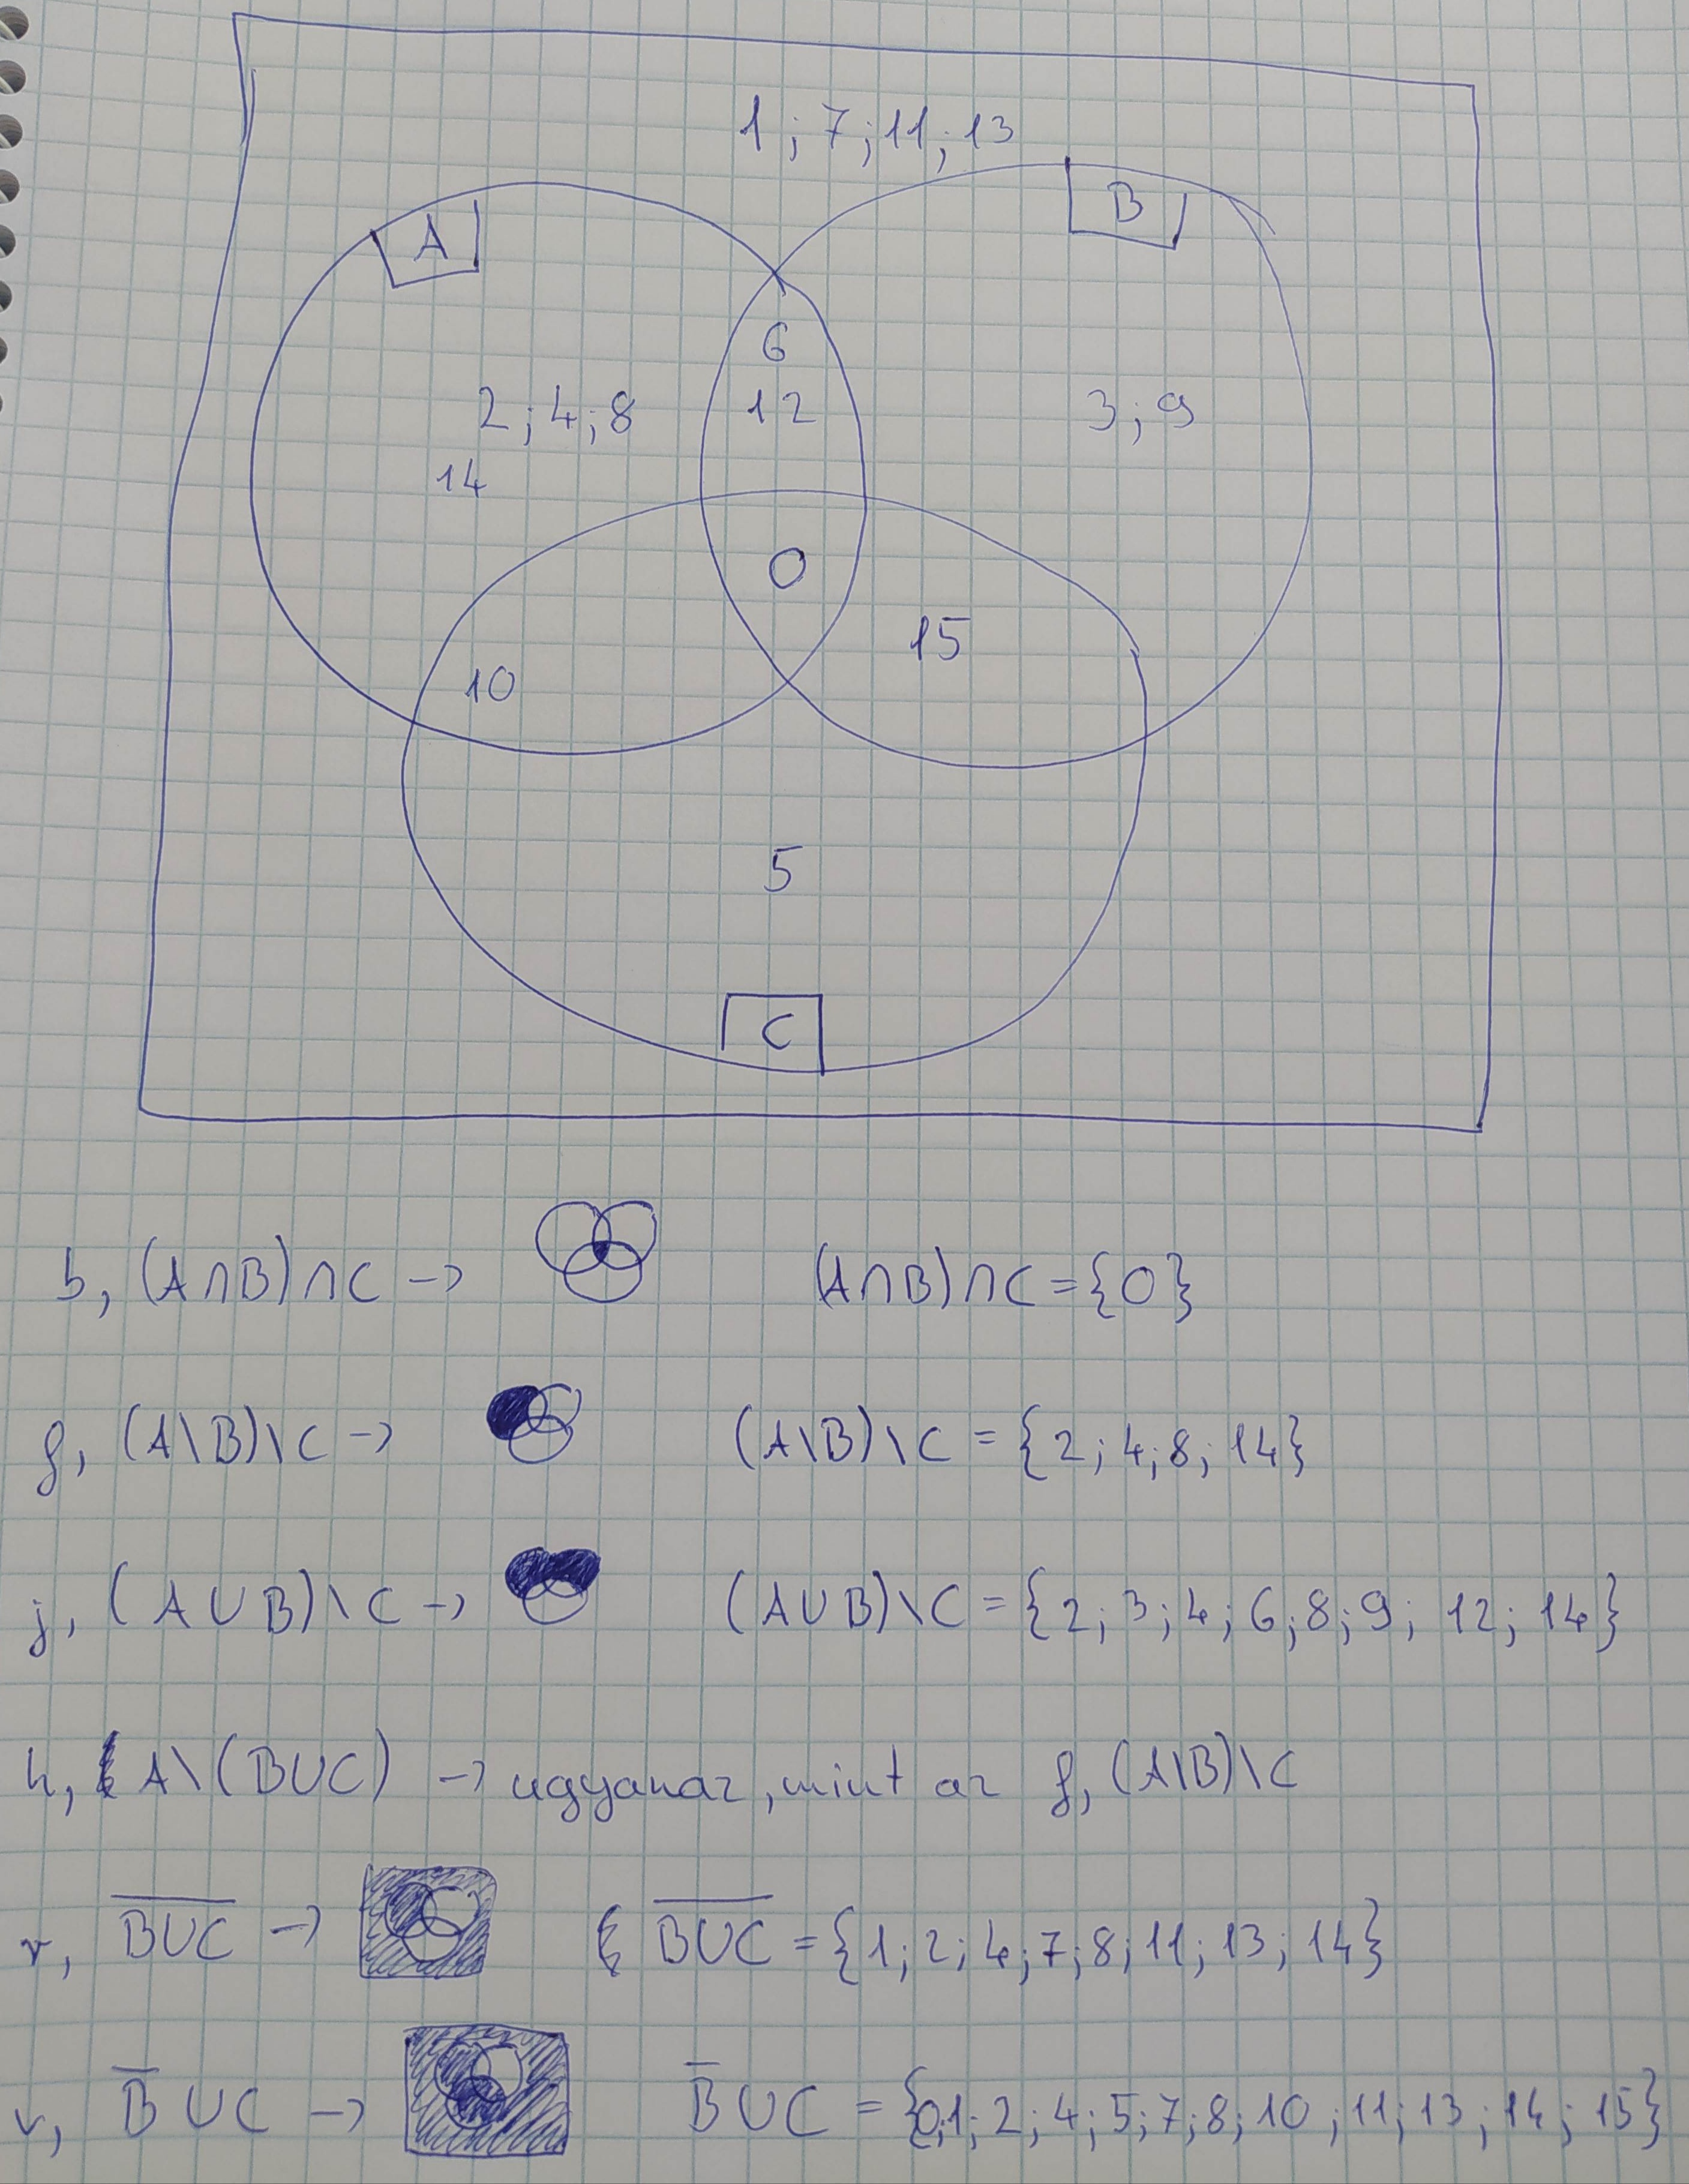 1; 7; 11; 13
A
B
6
2; 4; 8
12
3; 9
14
0
15
10
5
C
b, (A∩B)∩C → (A∩B)∩C = {0}
f, (A\B)\C → (A\B)\C = {2; 4; 8; 14}
j, (A∪B)\C → (A∪B)\C = {2; 3; 4; 6; 8; 9; 12; 14}
h, A\(B∪C) → ugyanaz, mint az f, (A\B)\C
r, B̅∪̅C̅ → B̅∪̅C̅ = {1; 2; 4; 7; 8; 11; 13; 14}
v, B̅∪C → B̅∪C = {0;1; 2; 4; 5; 7; 8; 10; 11; 13; 14; 15}